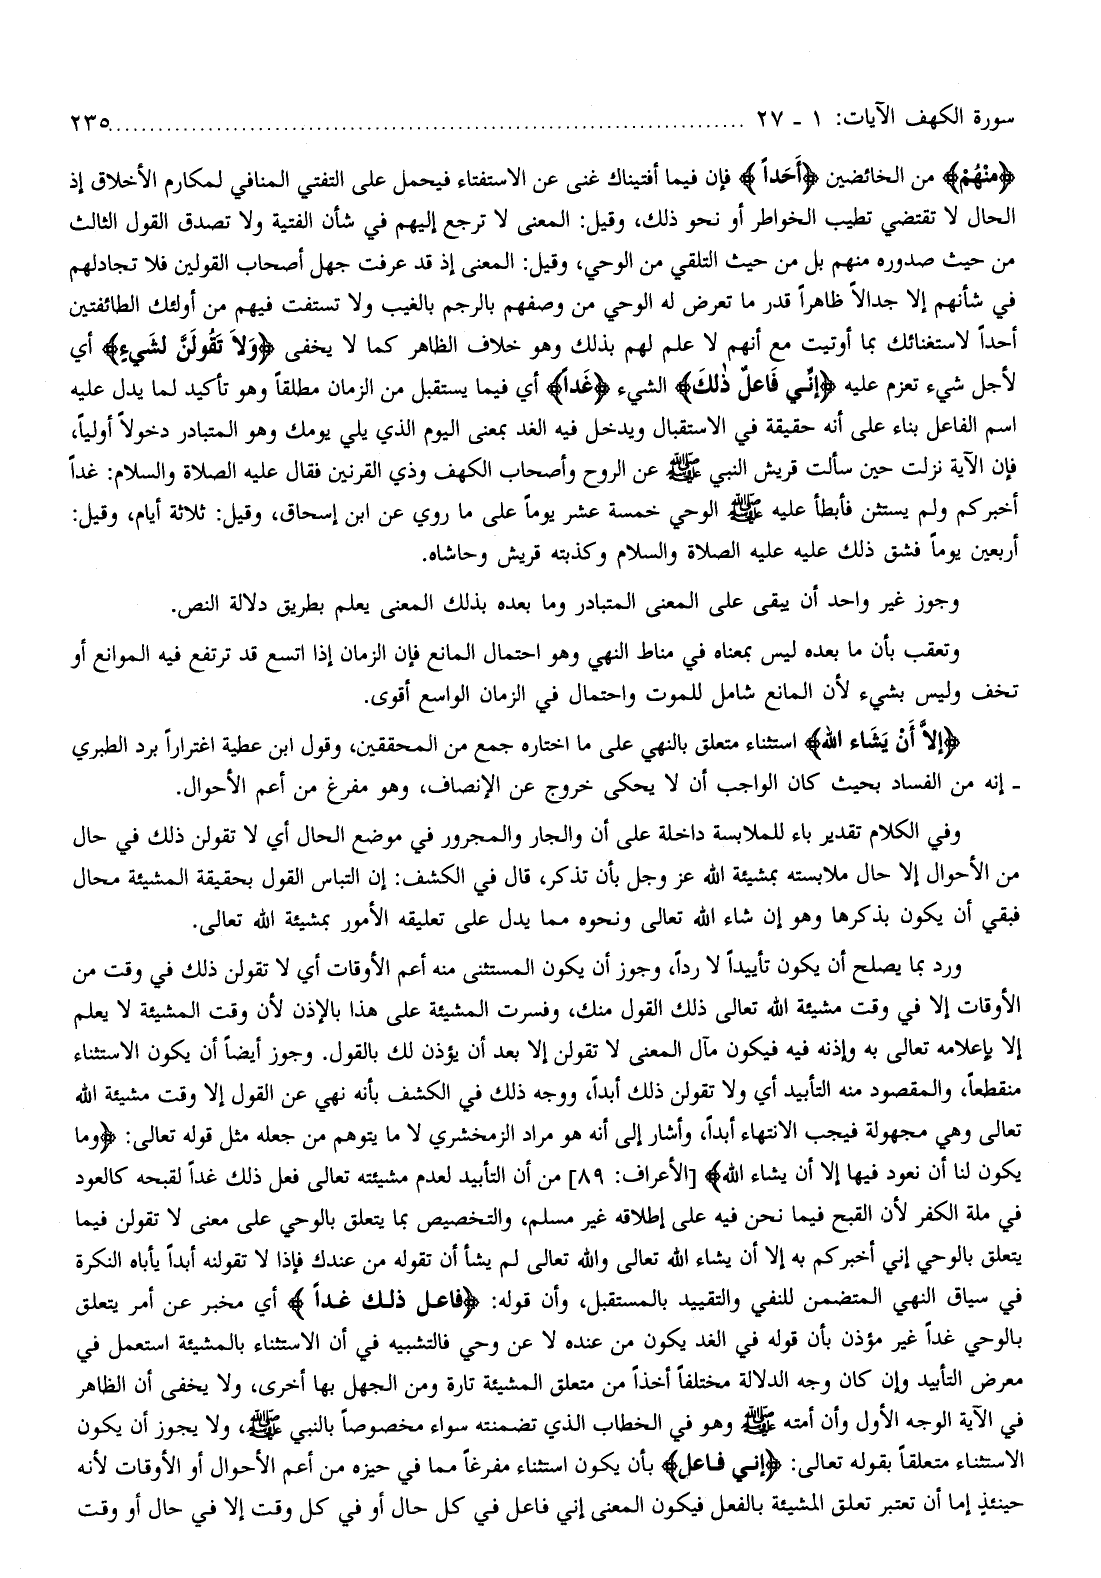 سورة الكهف الآيات: ١ ـ ٢٧ ........................................................................... ٢٣٥
﴿مِنْهُمْ﴾ من الخائضين ﴿أَحَداً﴾ فإن فيما أفتيناك غنى عن الاستفتاء فيحمل على التفتي المنافي لمكارم الأخلاق إذ
الحال لا تقتضي تطيب الخواطر أو نحو ذلك، وقيل: المعنى لا ترجع إليهم في شأن الفتية ولا تصدق القول الثالث
من حيث صدوره منهم بل من حيث التلقي من الوحي، وقيل: المعنى إذ قد عرفت جهل أصحاب القولين فلا تجادلهم
في شأنهم إلا جدالاً ظاهراً قدر ما تعرض له الوحي من وصفهم بالرجم بالغيب ولا تستفت فيهم من أولئك الطائفتين
أحداً لاستغنائك بما أوتيت مع أنهم لا علم لهم بذلك وهو خلاف الظاهر كما لا يخفى ﴿وَلاَ تَقُولَنَّ لشَيْءٍ﴾ أي
لأجل شيء تعزم عليه ﴿إنِّي فَاعلٌ ذٰلكَ﴾ الشيء ﴿غَداً﴾ أي فيما يستقبل من الزمان مطلقاً وهو تأكيد لما يدل عليه
اسم الفاعل بناء على أنه حقيقة في الاستقبال ويدخل فيه الغد بمعنى اليوم الذي يلي يومك وهو المتبادر دخولاً أولياً،
فإن الآية نزلت حين سألت قريش النبي ﷺ عن الروح وأصحاب الكهف وذي القرنين فقال عليه الصلاة والسلام: غداً
أخبركم ولم يستثن فأبطأ عليه ﷺ الوحي خمسة عشر يوماً على ما روي عن ابن إسحاق، وقيل: ثلاثة أيام، وقيل:
أربعين يوماً فشق ذلك عليه عليه الصلاة والسلام وكذبته قريش وحاشاه.
وجوز غير واحد أن يبقى على المعنى المتبادر وما بعده بذلك المعنى يعلم بطريق دلالة النص.
وتعقب بأن ما بعده ليس بمعناه في مناط النهي وهو احتمال المانع فإن الزمان إذا اتسع قد ترتفع فيه الموانع أو
تخف وليس بشيء لأن المانع شامل للموت واحتمال في الزمان الواسع أقوى.
﴿إلاَّ أَنْ يَشَاء الله﴾ استثناء متعلق بالنهي على ما اختاره جمع من المحققين، وقول ابن عطية اغتراراً برد الطبري
ـ إنه من الفساد بحيث كان الواجب أن لا يحكى خروج عن الإنصاف، وهو مفرغ من أعم الأحوال.
وفي الكلام تقدير باء للملابسة داخلة على أن والجار والمجرور في موضع الحال أي لا تقولن ذلك في حال
من الأحوال إلا حال ملابسته بمشيئة الله عز وجل بأن تذكر، قال في الكشف: إن التباس القول بحقيقة المشيئة محال
فبقي أن يكون بذكرها وهو إن شاء الله تعالى ونحوه مما يدل على تعليقه الأمور بمشيئة الله تعالى.
ورد بما يصلح أن يكون تأييداً لا رداً، وجوز أن يكون المستثنى منه أعم الأوقات أي لا تقولن ذلك في وقت من
الأوقات إلا في وقت مشيئة الله تعالى ذلك القول منك، وفسرت المشيئة على هذا بالإذن لأن وقت المشيئة لا يعلم
إلا بإعلامه تعالى به وإذنه فيه فيكون مآل المعنى لا تقولن إلا بعد أن يؤذن لك بالقول. وجوز أيضاً أن يكون الاستثناء
منقطعاً، والمقصود منه التأبيد أي ولا تقولن ذلك أبداً، ووجه ذلك في الكشف بأنه نهي عن القول إلا وقت مشيئة الله
تعالى وهي مجهولة فيجب الانتهاء أبداً، وأشار إلى أنه هو مراد الزمخشري لا ما يتوهم من جعله مثل قوله تعالى: ﴿وما
يكون لنا أن نعود فيها إلا أن يشاء الله﴾ [الأعراف: ٨٩] من أن التأبيد لعدم مشيئته تعالى فعل ذلك غداً لقبحه كالعود
في ملة الكفر لأن القبح فيما نحن فيه على إطلاقه غير مسلم، والتخصيص بما يتعلق بالوحي على معنى لا تقولن فيما
يتعلق بالوحي إني أخبركم به إلا أن يشاء الله تعالى والله تعالى لم يشأ أن تقوله من عندك فإذا لا تقولنه أبداً يأباه النكرة
في سياق النهي المتضمن للنفي والتقييد بالمستقبل، وأن قوله: ﴿فاعل ذلك غداً﴾ أي مخبر عن أمر يتعلق
بالوحي غداً غير مؤذن بأن قوله في الغد يكون من عنده لا عن وحي فالتشبيه في أن الاستثناء بالمشيئة استعمل في
معرض التأبيد وإن كان وجه الدلالة مختلفاً أخذاً من متعلق المشيئة تارة ومن الجهل بها أخرى، ولا يخفى أن الظاهر
في الآية الوجه الأول وأن أمته ﷺ وهو في الخطاب الذي تضمنته سواء مخصوصاً بالنبي ﷺ، ولا يجوز أن يكون
الاستثناء متعلقاً بقوله تعالى: ﴿إني فاعل﴾ بأن يكون استثناء مفرغاً مما في حيزه من أعم الأحوال أو الأوقات لأنه
حينئذٍ إما أن تعتبر تعلق المشيئة بالفعل فيكون المعنى إني فاعل في كل حال أو في كل وقت إلا في حال أو وقت